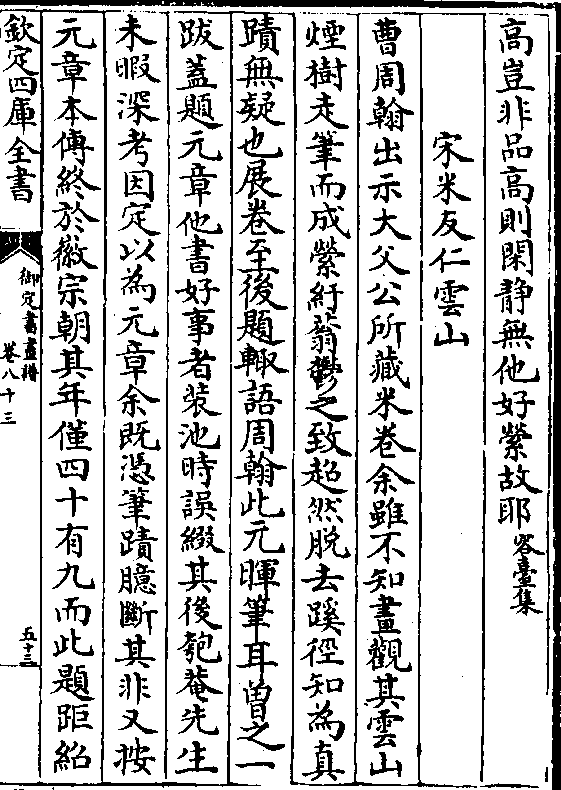 高豈非品高則閑静無他好縈故耶容臺集
宋米友仁雲山
曹周翰出示大父公所藏米卷余雖不知畫觀其雲山
煙樹走筆而成縈紆蓊鬱之致超然脱去蹊徑知為真
蹟無疑也展卷至後題輙語周翰此元暉筆耳曽之一
跋葢題元章他書好事者裝池時誤綴其後匏菴先生
未暇深考因定以為元章余既憑筆蹟臆斷其非又按
元章本傳終於徽宗朝其年僅四十有九而此題距紹
欽定四庫全書
御定書畫譜
卷八十三
五十三